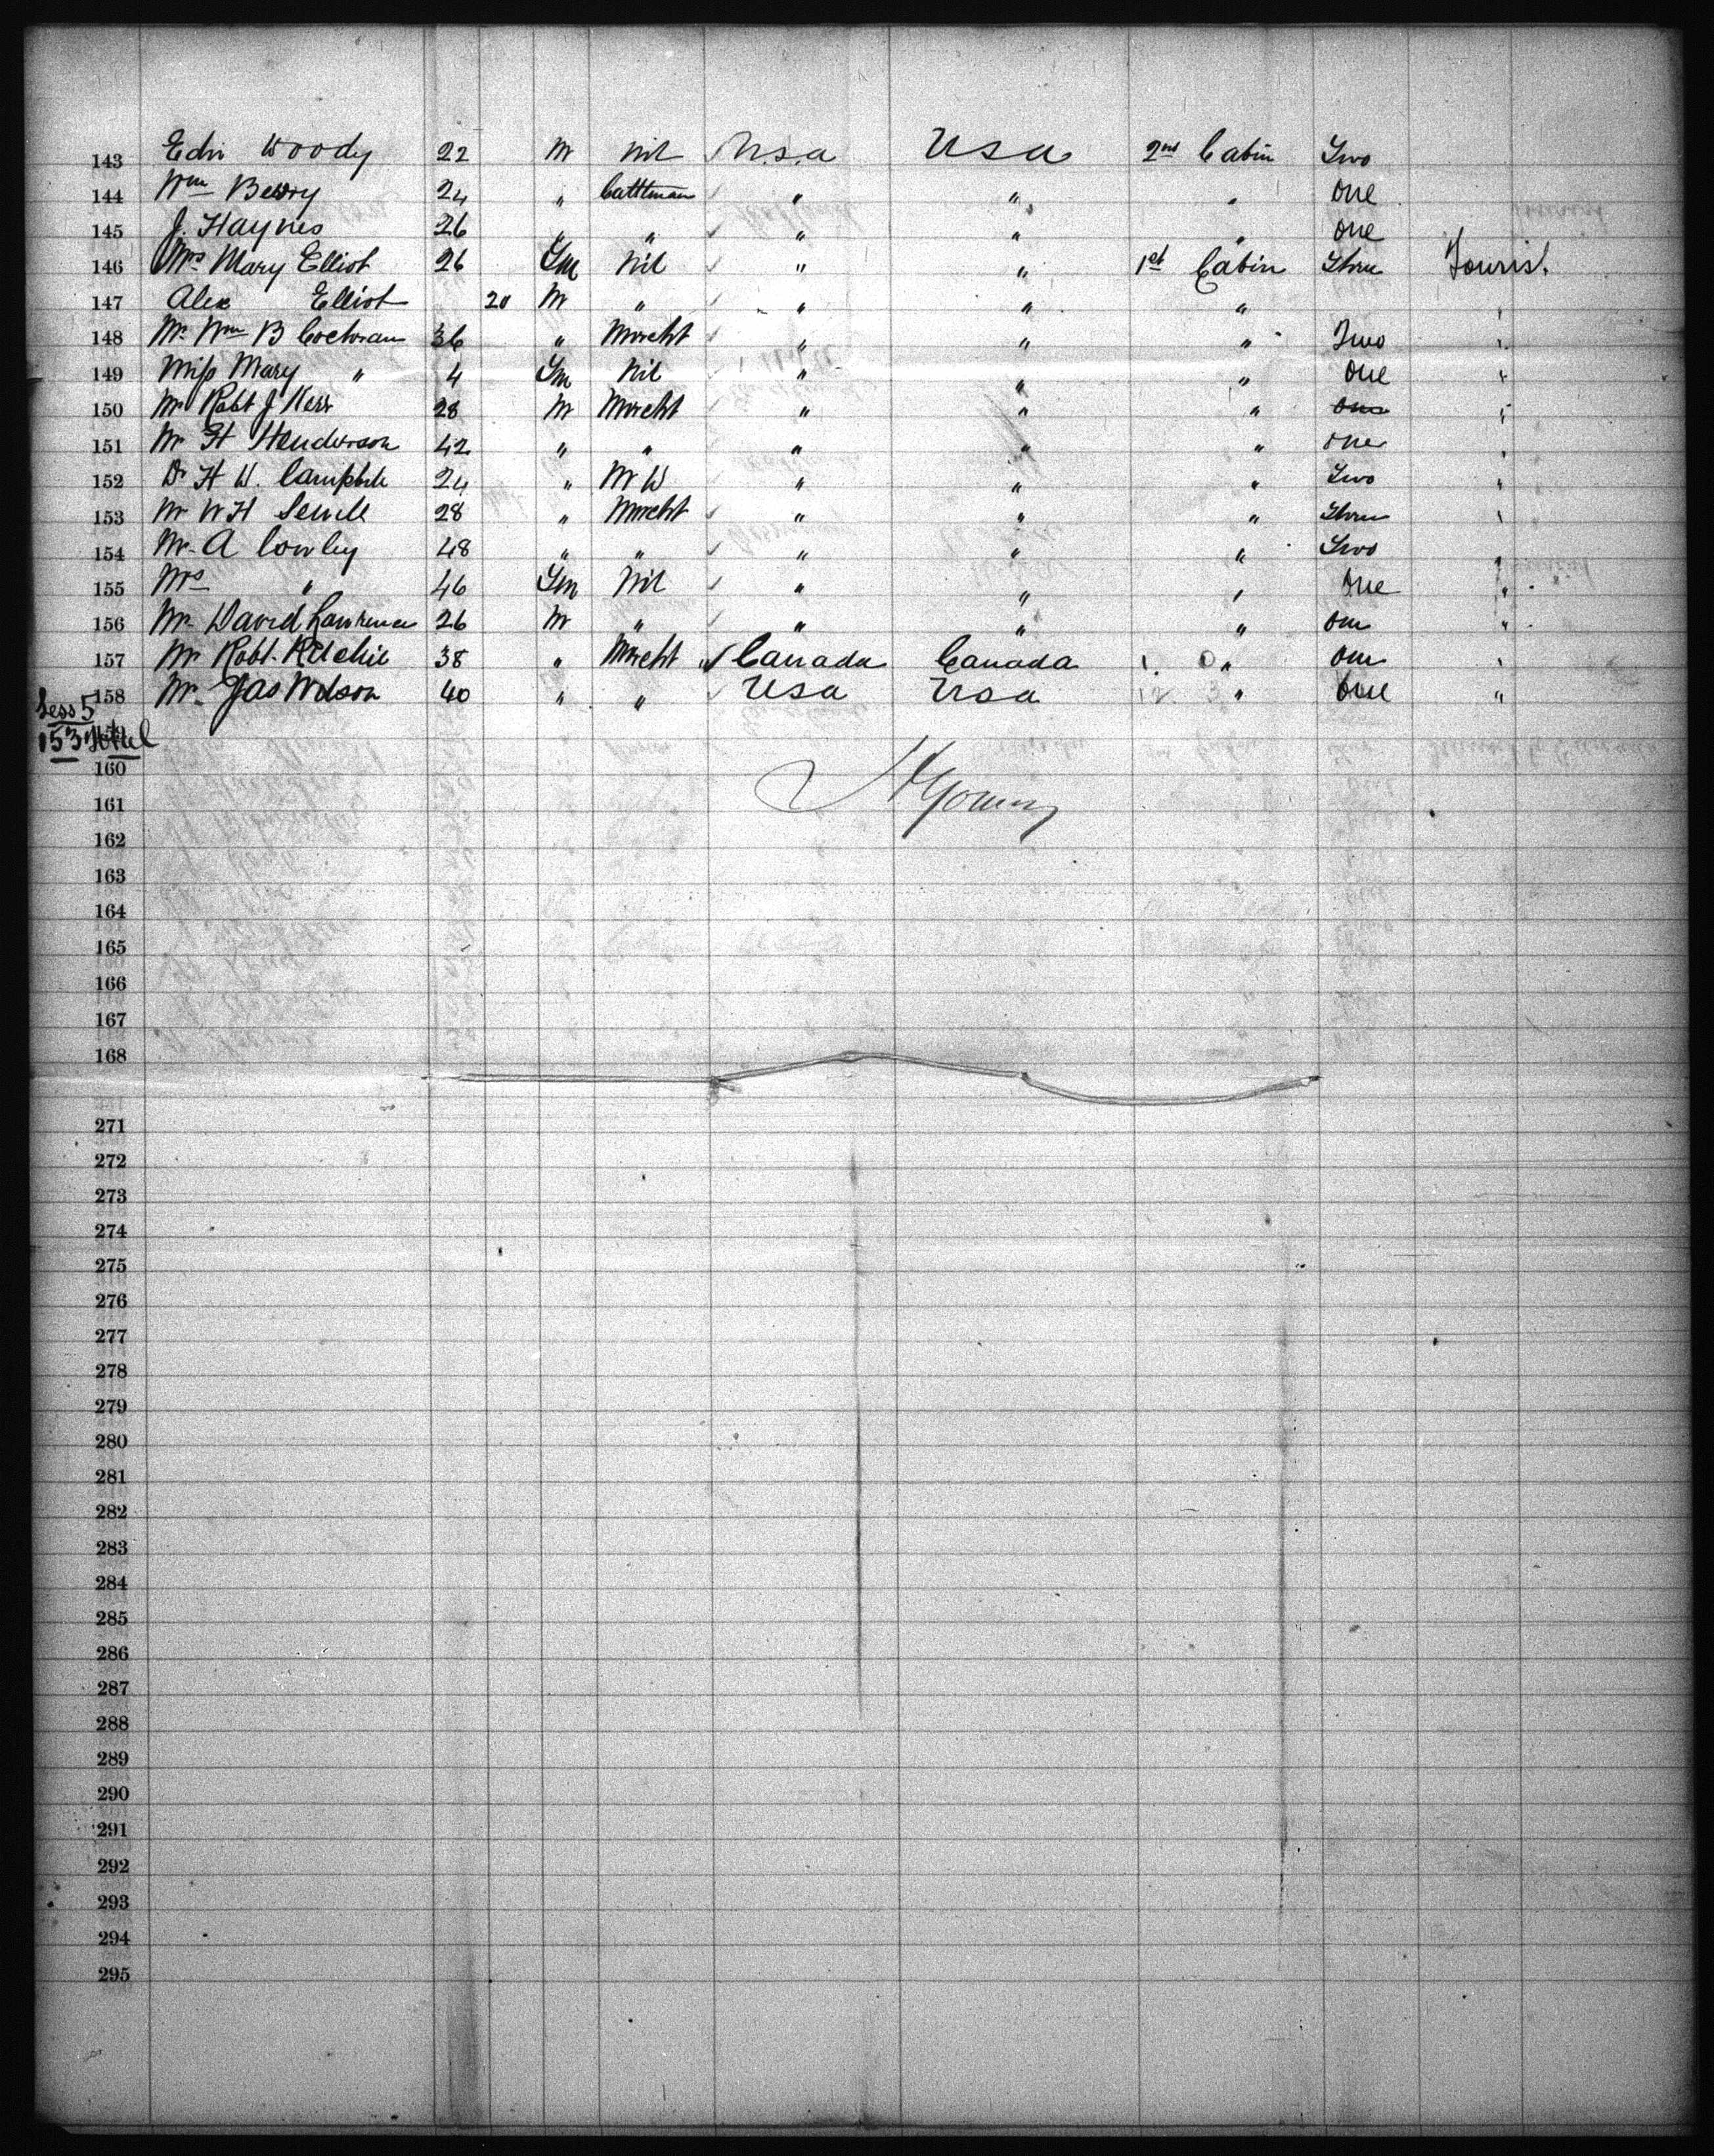 143 Edw Woody 22 M Nil U.S.a Usa 2nd Cabin Two
144 Wm Berry 24 " Cattleman " " " One
145 J. Haynes 26 " " " " " One
146 Mrs Mary Elliot 26 Fm Nil " " 1st Cabin Three Tourist.
147 Alex Elliot 20 M " " " "
148 Mr Wm B Cochran 36 " Mercht " " " Two "
149 Miss Mary " 4 Fm Nil " " " One "
150 Mr Robt J Kerr 28 M Mercht " " " One "
151 Mr H Henderson 42 " " " " " One "
152 Dr H W. Campbell 24 " " " " Two "
153 Mr W H 28 " Mercht " " " Three "
154 Mr A Cowley 48 " " " " " Two "
155 Mrs " 46 Fm Nil " " " One "
156 Mr David Lawrence 26 M " " " " One "
157 Mr Robt. Ritchie 38 " Mercht Canada Canada " One "
158 Mr Jas Wilson 40 " " Usa Usa " One "
Less 5
153 Total
160
Young
161
162
163
164
165
166
167
168
271
272
273
274
275
276
277
278
279
280
281
282
283
284
285
286
287
288
289
290
291
292
293
294
295